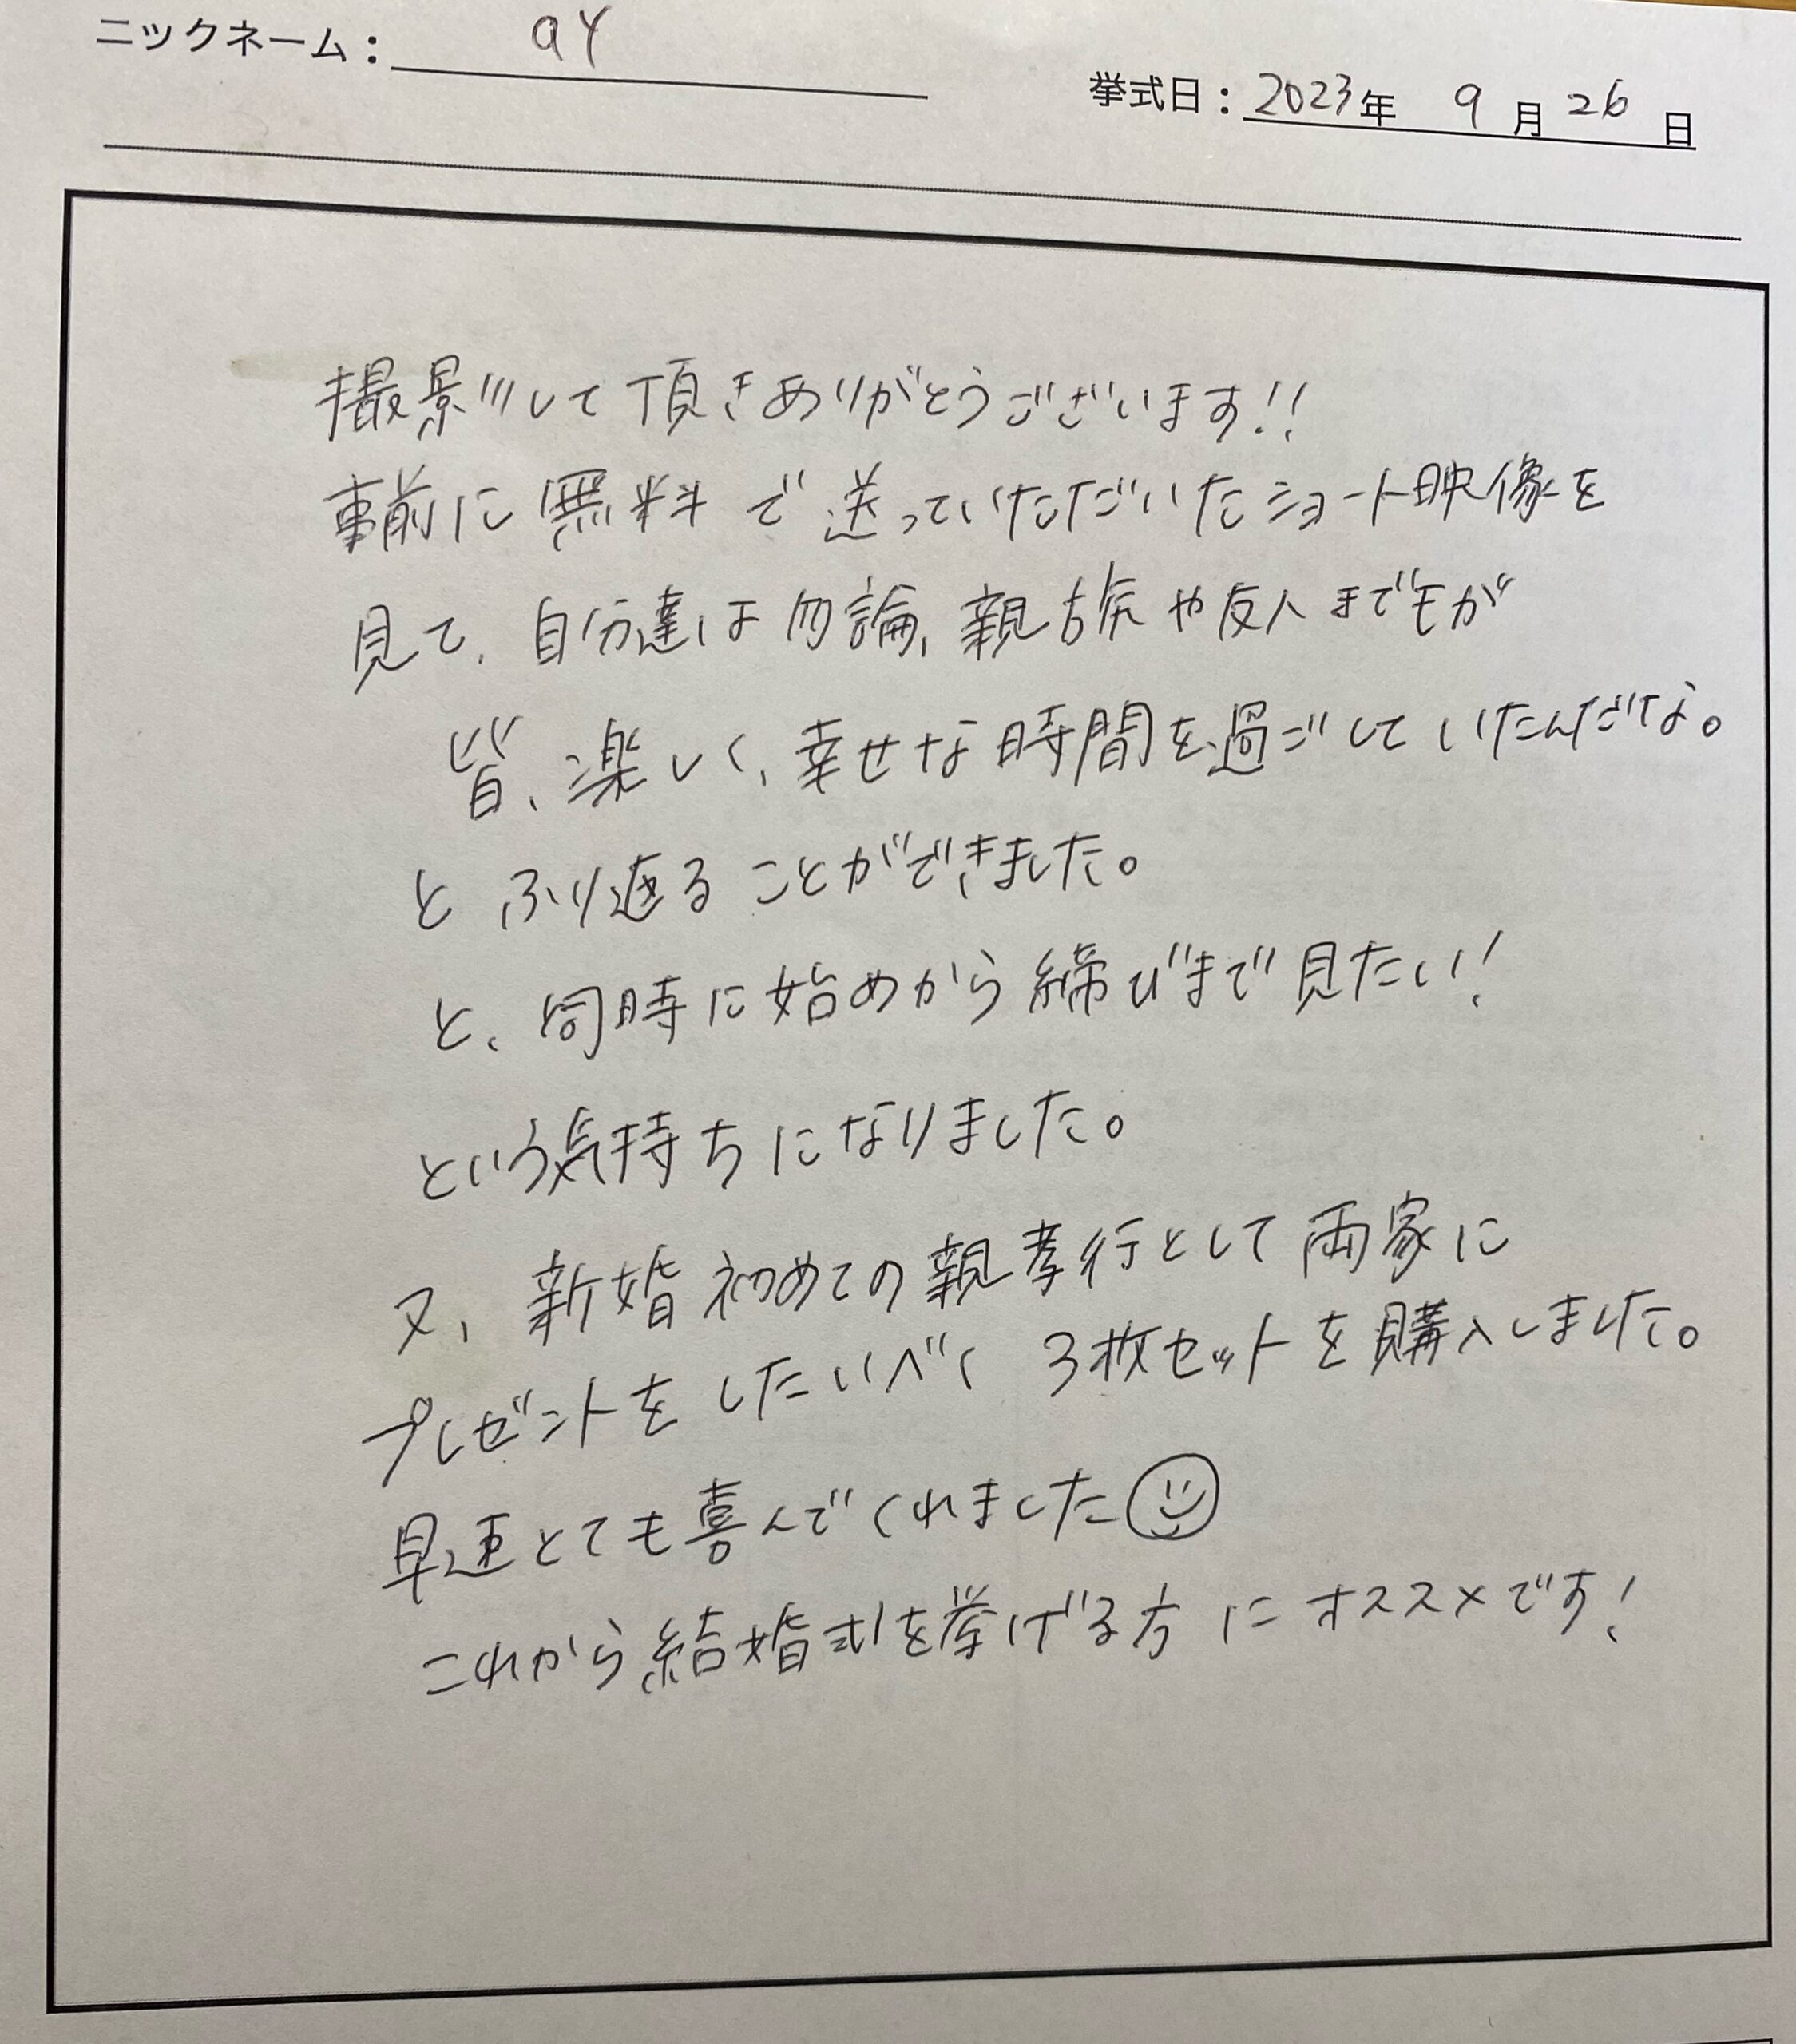 ニックネーム：ay
挙式日：2023年 9月26日
撮影して頂きありがとうございます!!
事前に無料で送っていただいたショート映像を
見て、自分達は勿論、親族や友人までもが
皆、楽しく、幸せな時間を過ごしていたんだな。
とふり返ることができました。
と、同時に始めから締びまで見たい!
という気持ちになりました。
又、新婚初めての親孝行として両家に
プレゼントをしたいべく3枚セットを購入しました。
早速とても喜んでくれました☺
これから結婚式を挙げる方にオススメです!